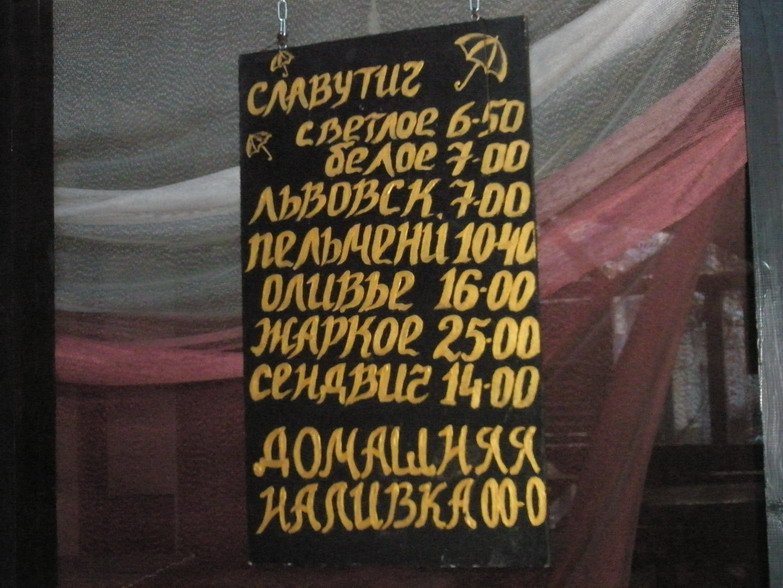 СЛАВУТИЧ
светлое 6-50
белое 7-00
ЛЬВОВСК. 7-00
ПЕЛЬМЕНИ 10 40
ОЛИВЬЕ 16-00
ЖАРКОЕ 25-00
СЕНДВИЧ 14-00
ДОМАШНЯЯ
НАЛИВКА 00-0